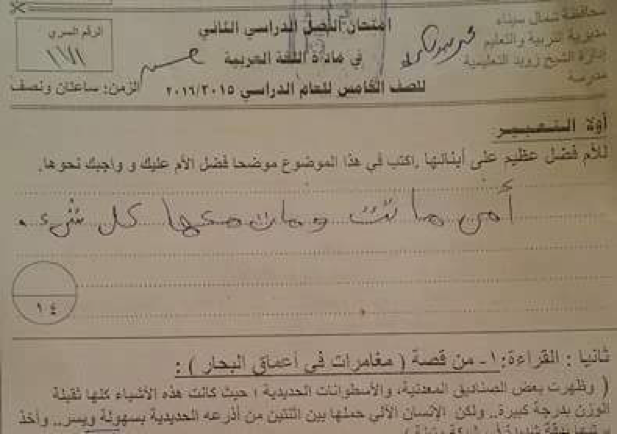 محافظة شمال سيناء
مديرية التربية والتعليم
إدارة الشيخ زويد التعليمية
مدرسة
امتحان الفصل الدراسي الثاني
في مادة اللغة العربية
للصف الخامس للعام الدراسي ٢٠١٦/٢٠١٥
الرقم السري
١١٧١
الزمن: ساعتان ونصف
أولا التعبير
للأم فضل عظيم على أبنائها .اكتب في هذا الموضوع موضحا فضل الأم عليك و واجبك نحوها.
أمي ماتت ومات معها كل شيء.
١٤
ثانيا : القراءة: ١- من قصة ( مغامرات في أعماق البحار ) :
( وظهرت بعض الصناديق المعدنية، والأسطوانات الحديدية ؛ حيث كانت هذه الأشياء كلها ثقيلة
الوزن بدرجة كبيرة.. ولكن الإنسان الآلي حملها بين اثنتين من أذرعه الحديدية بسهولة ويسر.. وأخذ